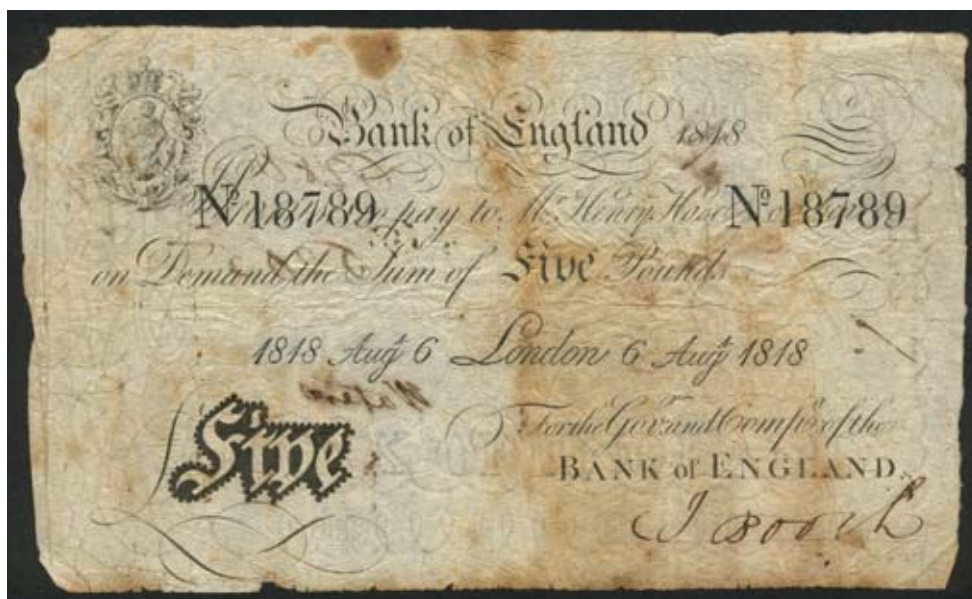 Bank of England 1818
Nº 18789 pay to Mr. Henry Hase Nº 18789
on Demand the Sum of Five Pounds
1818 Augt 6 London 6 Augt 1818
For the Govr. and Compa. of the
Five
BANK of ENGLAND.
J Booth